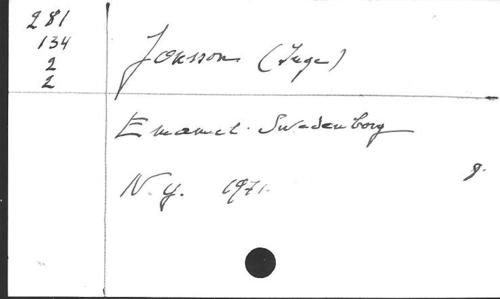 281
134
2
2
Jonsson (Inge)
Emanuel Swedenborg
N.Y. 1971.
g.